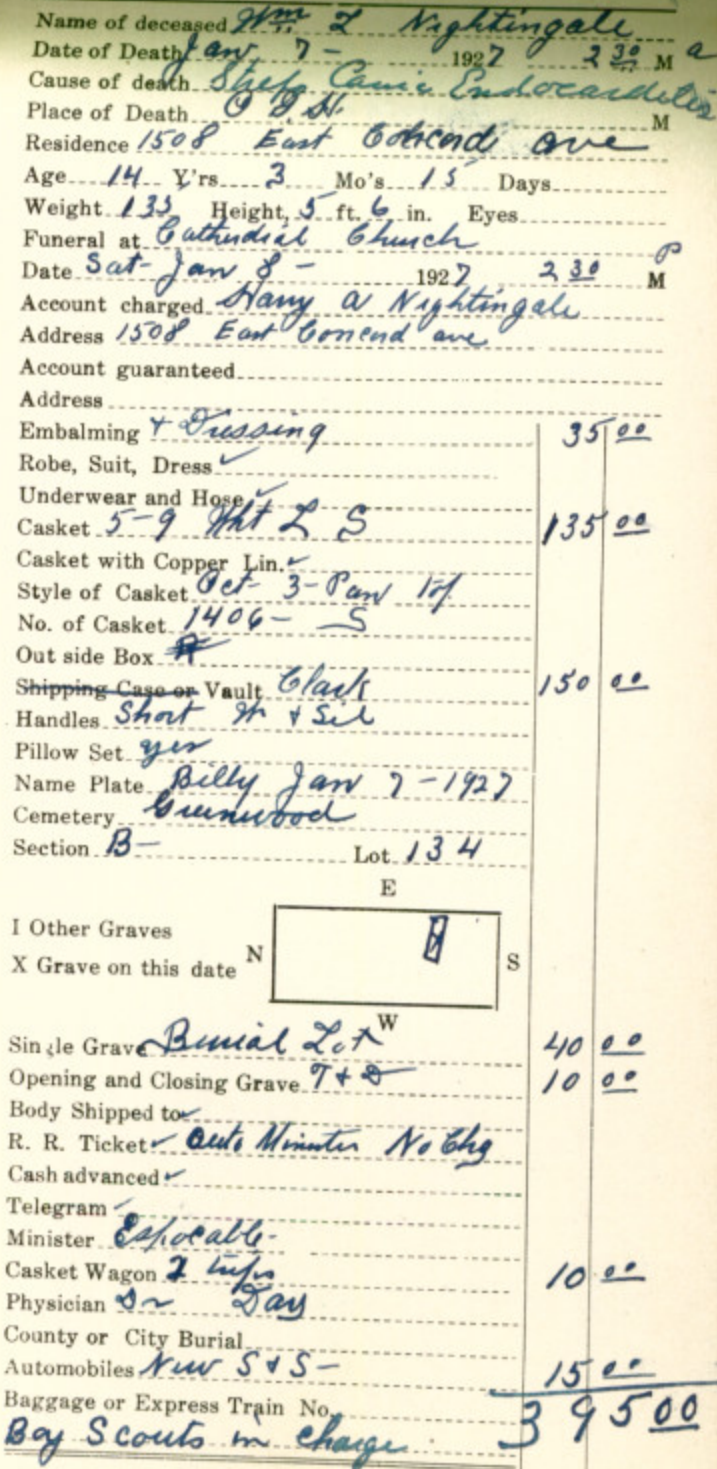 Name of deceased Wm L Nightingale
Date of Death Jan 7 - 1927 2 30 M a
Cause of death Endocarditis
Place of Death O G H. M
Residence 1508 East Concord ave
Age 14 Y'rs 3 Mo's 15 Days
Weight 133 Height, 5 ft. 6 in. Eyes
Funeral at Cathedial Church
Date Sat- Jan 8 - 1927 2 30 P M
Account charged Harry A Nightingale
Address 1508 East Concord ave
Account guaranteed
Address
Embalming + Dressing 35 00
Robe, Suit, Dress ✓
Underwear and Hose ✓
Casket 5-9 Wht L S 135 00
Casket with Copper Lin. ✓
Style of Casket Oct- 3- Pan
No. of Casket 1406- S
Out side Box
Shipping Case or Vault Clark 150 00
Handles Short W + Sil
Pillow Set yes
Name Plate Billy Jan 7-1927
Cemetery Greenwood
Section B- Lot 134
E
I Other Graves
X Grave on this date N S
W
Single Grave Burial Lot 40 00
Opening and Closing Grave T + D 10 00
Body Shipped to ✓
R. R. Ticket ✓ Auto Minister No Chg
Cash advanced ✓
Telegram ✓
Minister
Casket Wagon 2 trips 10 00
Physician Dr Day
County or City Burial
Automobiles New S & S - 15 00
Baggage or Express Train No. 395 00
Boy Scouts in charge